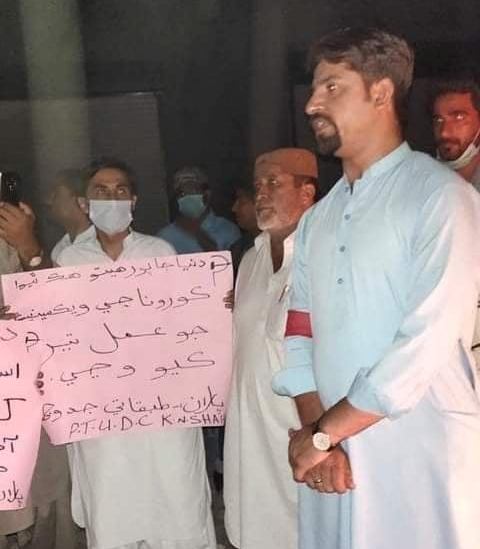 دنيا جا پورهيتو هڪ ٿيو
ڪورونا جي ويڪسين
جو عمل تيز
ڪيو وڃي.
پلان - طبقاتي جدوجهد
P.T.U.D.C K.N.SHAH
پلان